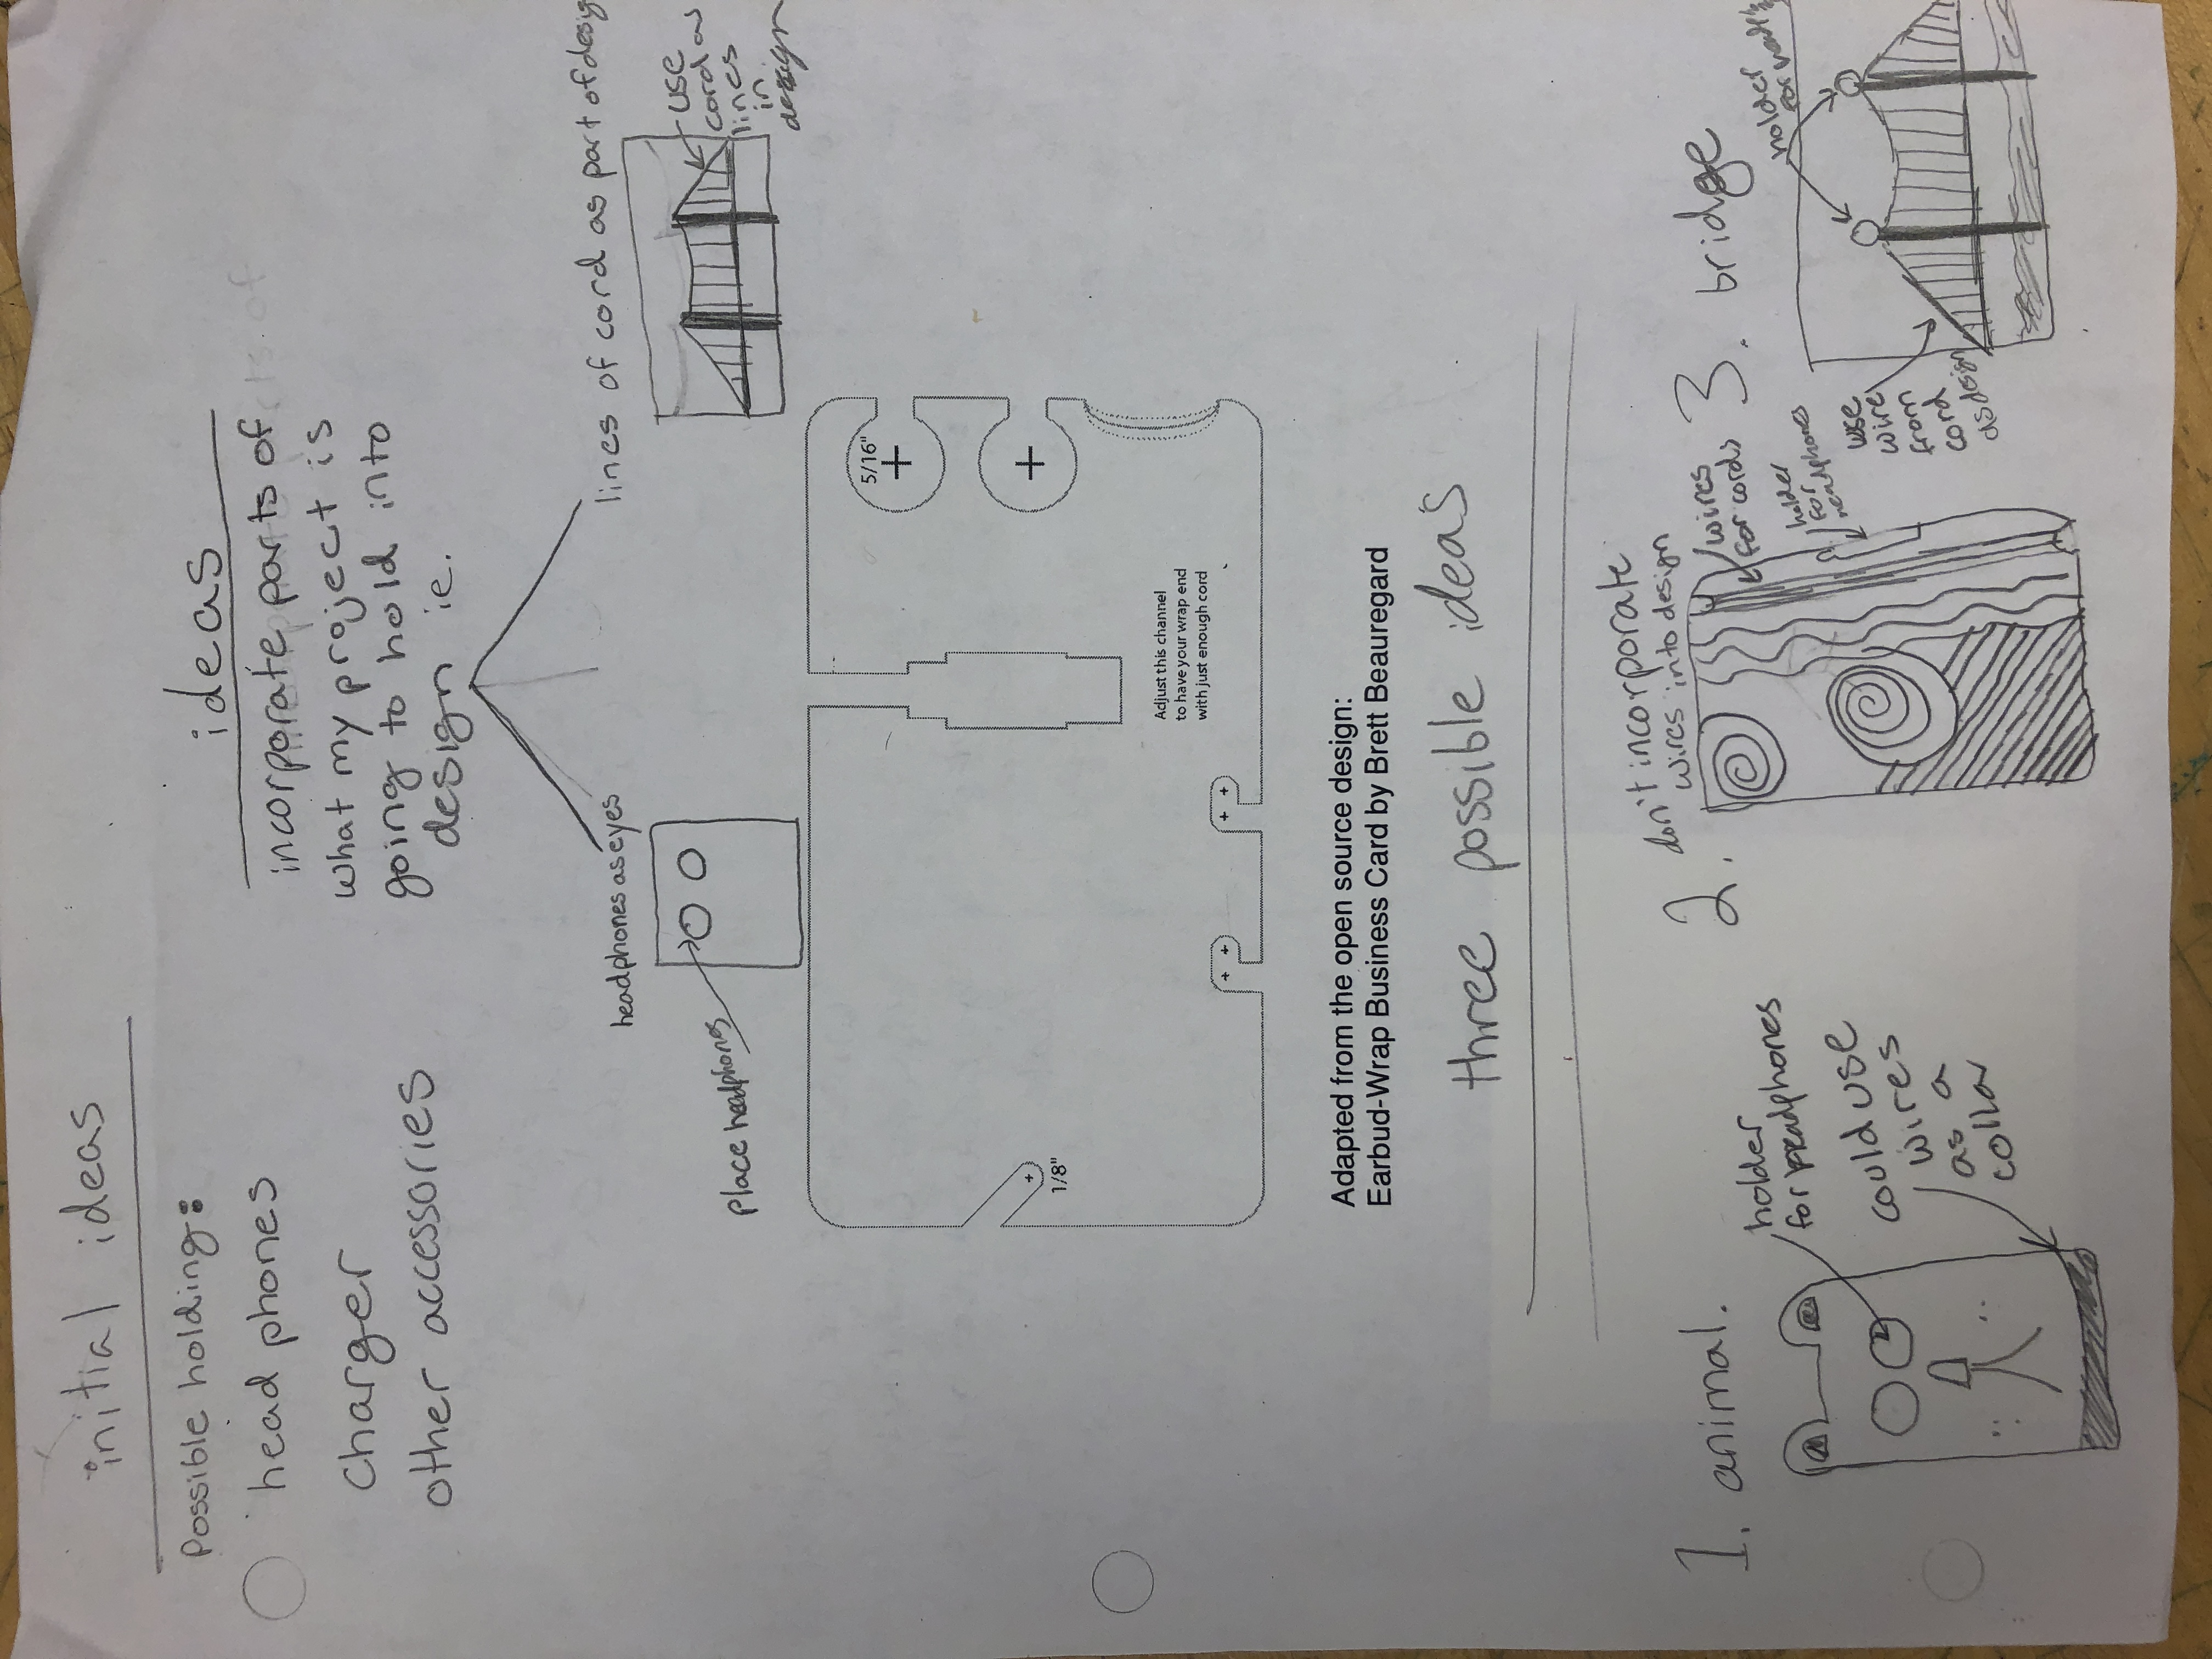 initial ideas
Possible holding:
head phones
charger
other accessories
ideas
incorporate parts of
what my project is
going to hold into
design ie.
headphones as eyes
Place headphones
lines of cord as part of desig
use
cord as
lines
in
design
5/16"
1/8"
Adjust this channel
to have your wrap end
with just enough cord
Adapted from the open source design:
Earbud-Wrap Business Card by Brett Beauregard
three possible ideas
1. animal.
holder
for headphones
could use
wires
as a
collar
2. don't incorporate
wires into design
wires
for cords
holder
for
headphones
3. bridge
holder
for
use
wire
from
cord
as design